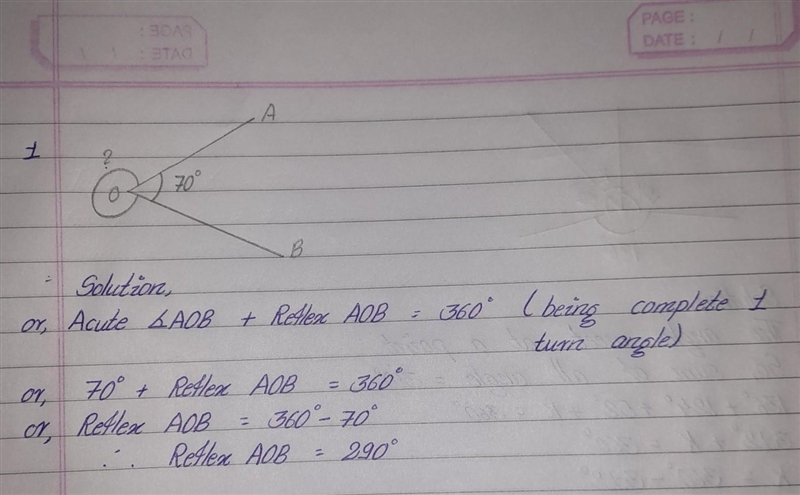 PAGE :
DATE : / /
1
A
?
O
70°
B
Solution,
or, Acute ∡AOB + Reflex AOB = 360° (being complete 1
turn angle)
or, 70° + Reflex AOB = 360°
or, Reflex AOB = 360° - 70°
∴ Reflex AOB = 290°